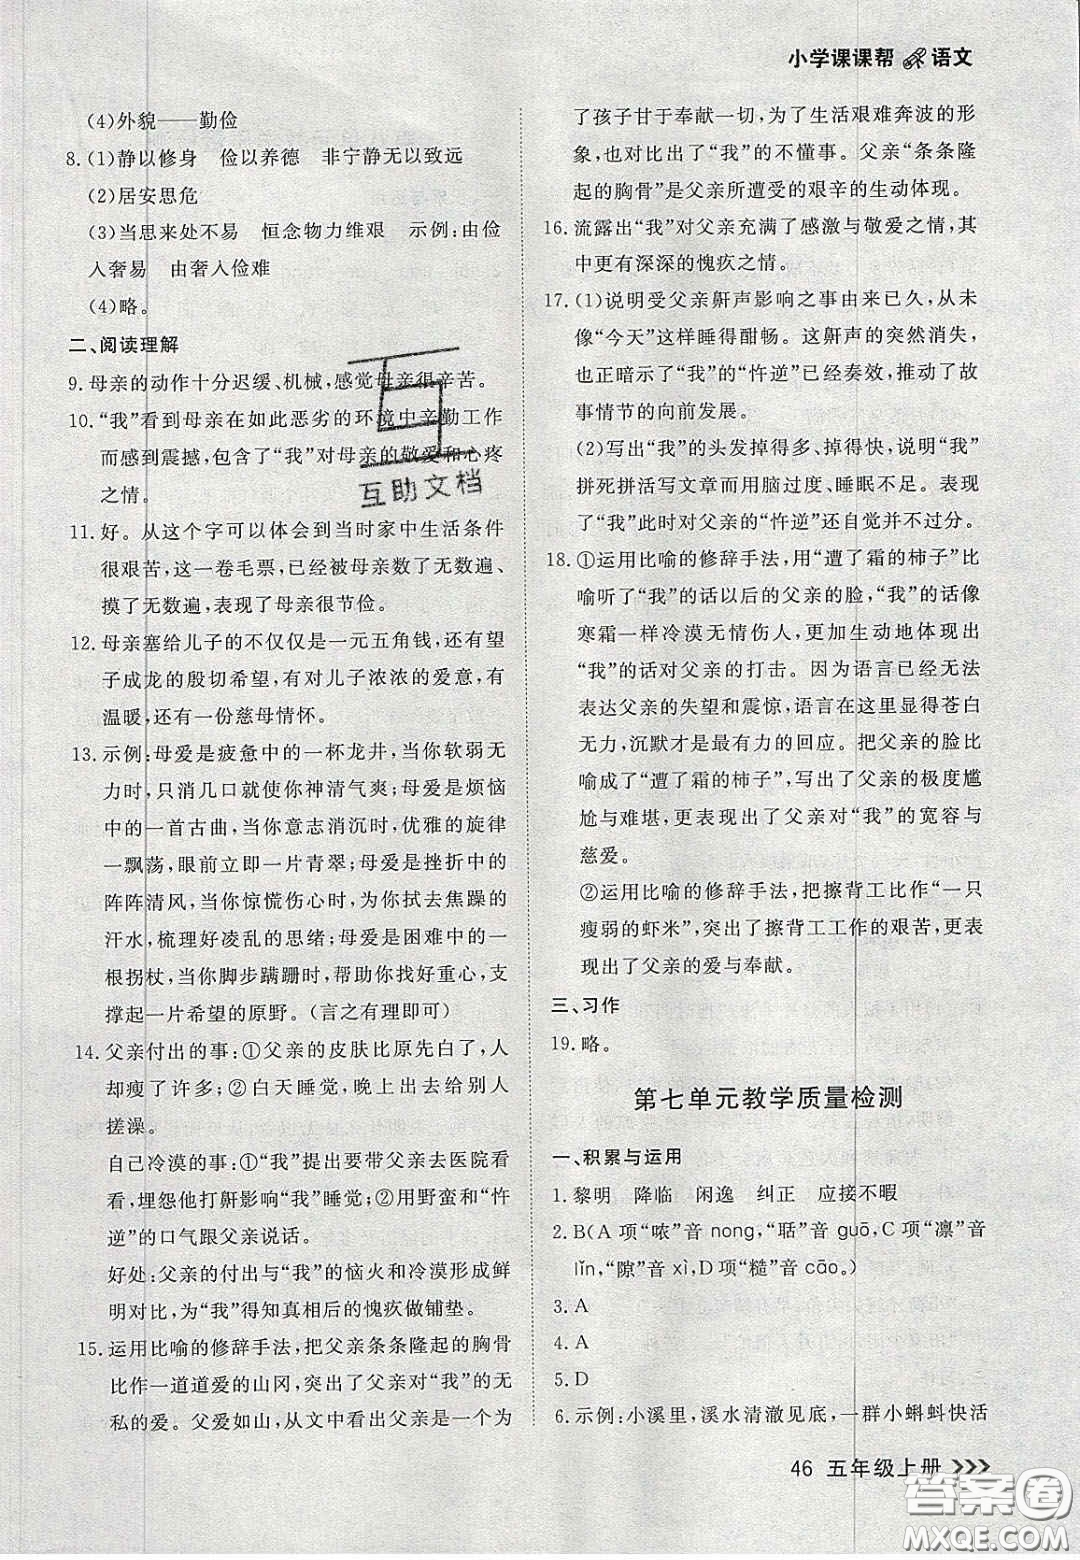 小学课课帮 语文
(4)外貌——勤俭
8.(1)静以修身　俭以养德　非宁静无以致远
(2)居安思危
(3)当思来处不易　恒念物力维艰　示例:由俭
入奢易　由奢入俭难
(4)略。
二、阅读理解
9.母亲的动作十分迟缓、机械,感觉母亲很辛苦。
10.“我”看到母亲在如此恶劣的环境中辛勤工作
而感到震撼,包含了“我”对母亲的敬爱和心疼
之情。
11.好。从这个字可以体会到当时家中生活条件
很艰苦,这一卷毛票,已经被母亲数了无数遍、
摸了无数遍,表现了母亲很节俭。
12.母亲塞给儿子的不仅仅是一元五角钱,还有望
子成龙的殷切希望,有对儿子浓浓的爱意,有
温暖,还有一份慈母情怀。
13.示例:母爱是疲惫中的一杯龙井,当你软弱无
力时,只消几口就使你神清气爽;母爱是烦恼
中的一首古曲,当你意志消沉时,优雅的旋律
一飘荡,眼前立即一片青翠;母爱是挫折中的
阵阵清风,当你惊慌伤心时,为你拭去焦躁的
汗水,梳理好凌乱的思绪;母爱是困难中的一
根拐杖,当你脚步蹒跚时,帮助你找好重心,支
撑起一片希望的原野。(言之有理即可)
14.父亲付出的事:①父亲的皮肤比原先白了,人
却瘦了许多;②白天睡觉,晚上出去给别人
搓澡。
自己冷漠的事:①“我”提出要带父亲去医院看
看,埋怨他打鼾影响“我”睡觉;②用野蛮和“忤
逆”的口气跟父亲说话。
好处:父亲的付出与“我”的恼火和冷漠形成鲜
明对比,为“我”得知真相后的愧疚做铺垫。
15.运用比喻的修辞手法,把父亲条条隆起的胸骨
比作一道道爱的山冈,突出了父亲对“我”的无
私的爱。父爱如山,从文中看出父亲是一个为
了孩子甘于奉献一切,为了生活艰难奔波的形
象,也对比出了“我”的不懂事。父亲“条条隆
起的胸骨”是父亲所遭受的艰辛的生动体现。
16.流露出“我”对父亲充满了感激与敬爱之情,其
中更有深深的愧疚之情。
17.(1)说明受父亲鼾声影响之事由来已久,从未
像“今天”这样睡得酣畅。这鼾声的突然消失,
也正暗示了“我”的“忤逆”已经奏效,推动了故
事情节的向前发展。
(2)写出“我”的头发掉得多、掉得快,说明“我”
拼死拼活写文章而用脑过度、睡眠不足。表现
了“我”此时对父亲的“忤逆”还自觉并不过分。
18.①运用比喻的修辞手法,用“遭了霜的柿子”比
喻听了“我”的话以后的父亲的脸,“我”的话像
寒霜一样冷漠无情伤人,更加生动地体现出
“我”的话对父亲的打击。因为语言已经无法
表达父亲的失望和震惊,语言在此刻显得苍白
无力,沉默才是最有力的回应。把父亲的脸比
喻成了“遭了霜的柿子”,写出了父亲的极度尴
尬与难堪,更突出了父亲对“我”的宽容与
慈爱。
②运用比喻的修辞手法,把擦背工比作“一只
瘦弱的虾米”,突出了擦背工工作的艰苦,更表
现出了父亲的爱与奉献。
三、习作
19.略。
第七单元教学质量检测
一、积累与运用
1.黎明　降临　闲逸　纠正　应接不暇
2.B(A项“哝”音nong,“聒”音guō,C项“凛”音
lǐn,“隙”音xì,D项“糙”音cāo。)
3.A
4.A
5.D
6.示例:小溪里,溪水清澈见底,一群小蝌蚪快活
46 五年级上册
互助文档
答案圈
MXQE.COM